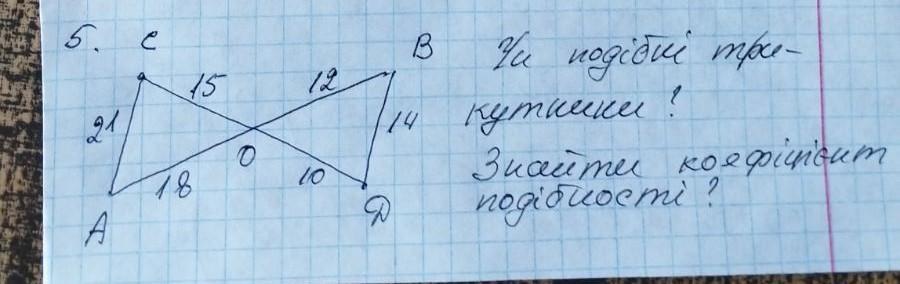 5.
C
B
15
12
21
14
O
18
10
A
D
Чи подібні три-
кутники?
Знайти коефіцієнт
подібності?